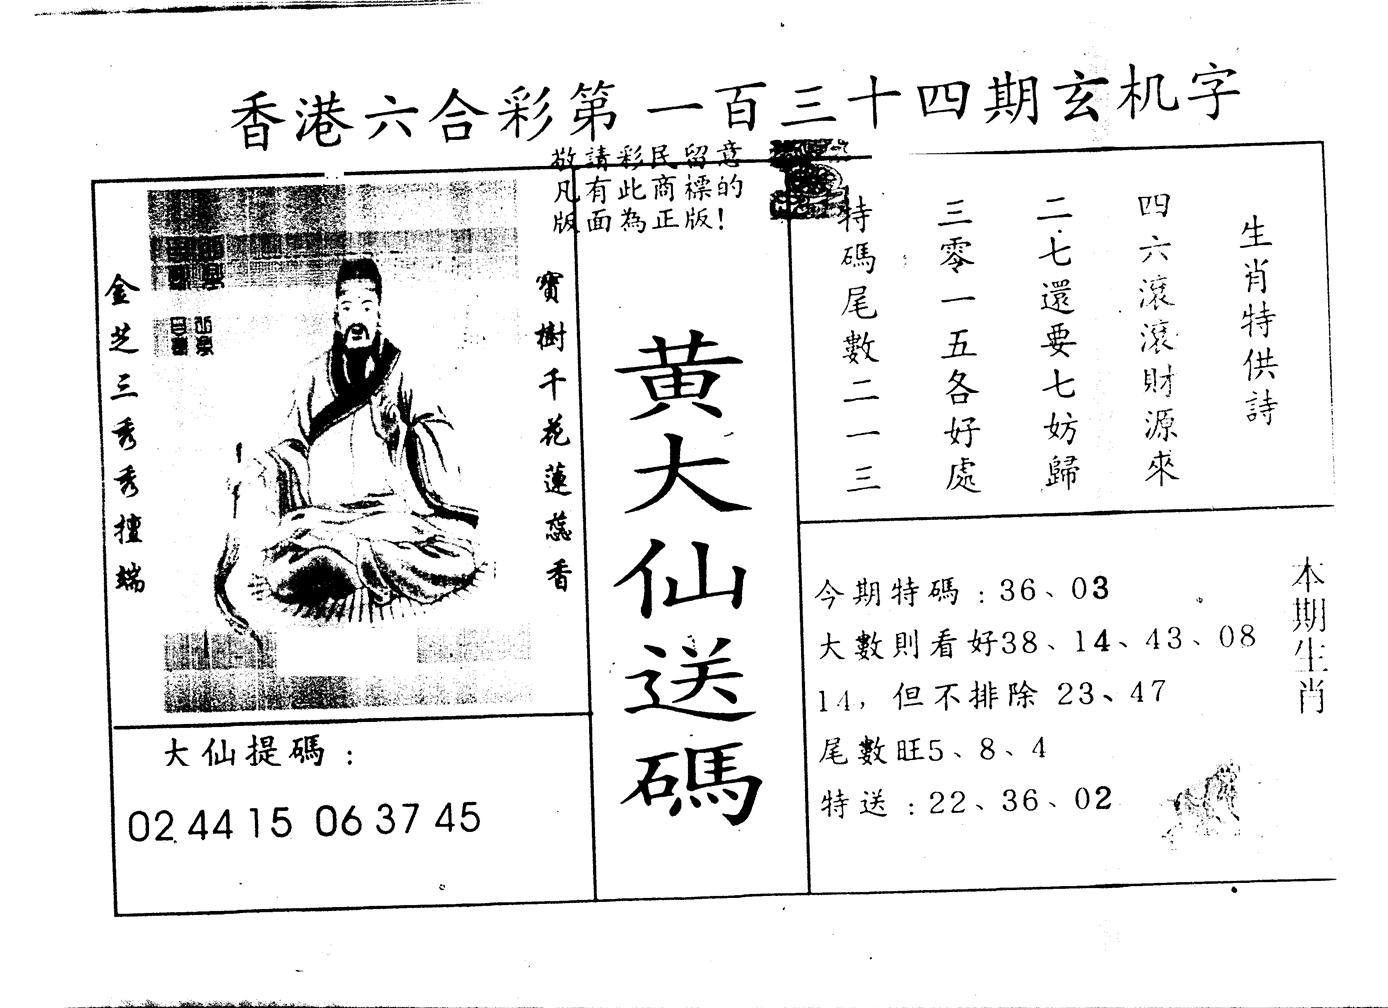 香港六合彩第一百三十四期玄机字
敬請彩民留意
凡有此商標的
版面為正版!
寶樹千花蓮蕊香
金芝三秀秀擅端
大仙提碼:
02 44 15 06 37 45
黄大仙送碼
生肖特供詩
四六滾滾財源來
二七還要七妨歸
三零一五各好處
特碼尾數二一三
今期特碼:36、03
大數則看好38、14、43、08
14,但不排除 23、47
尾數旺5、8、4
特送:22、36、02
本期生肖